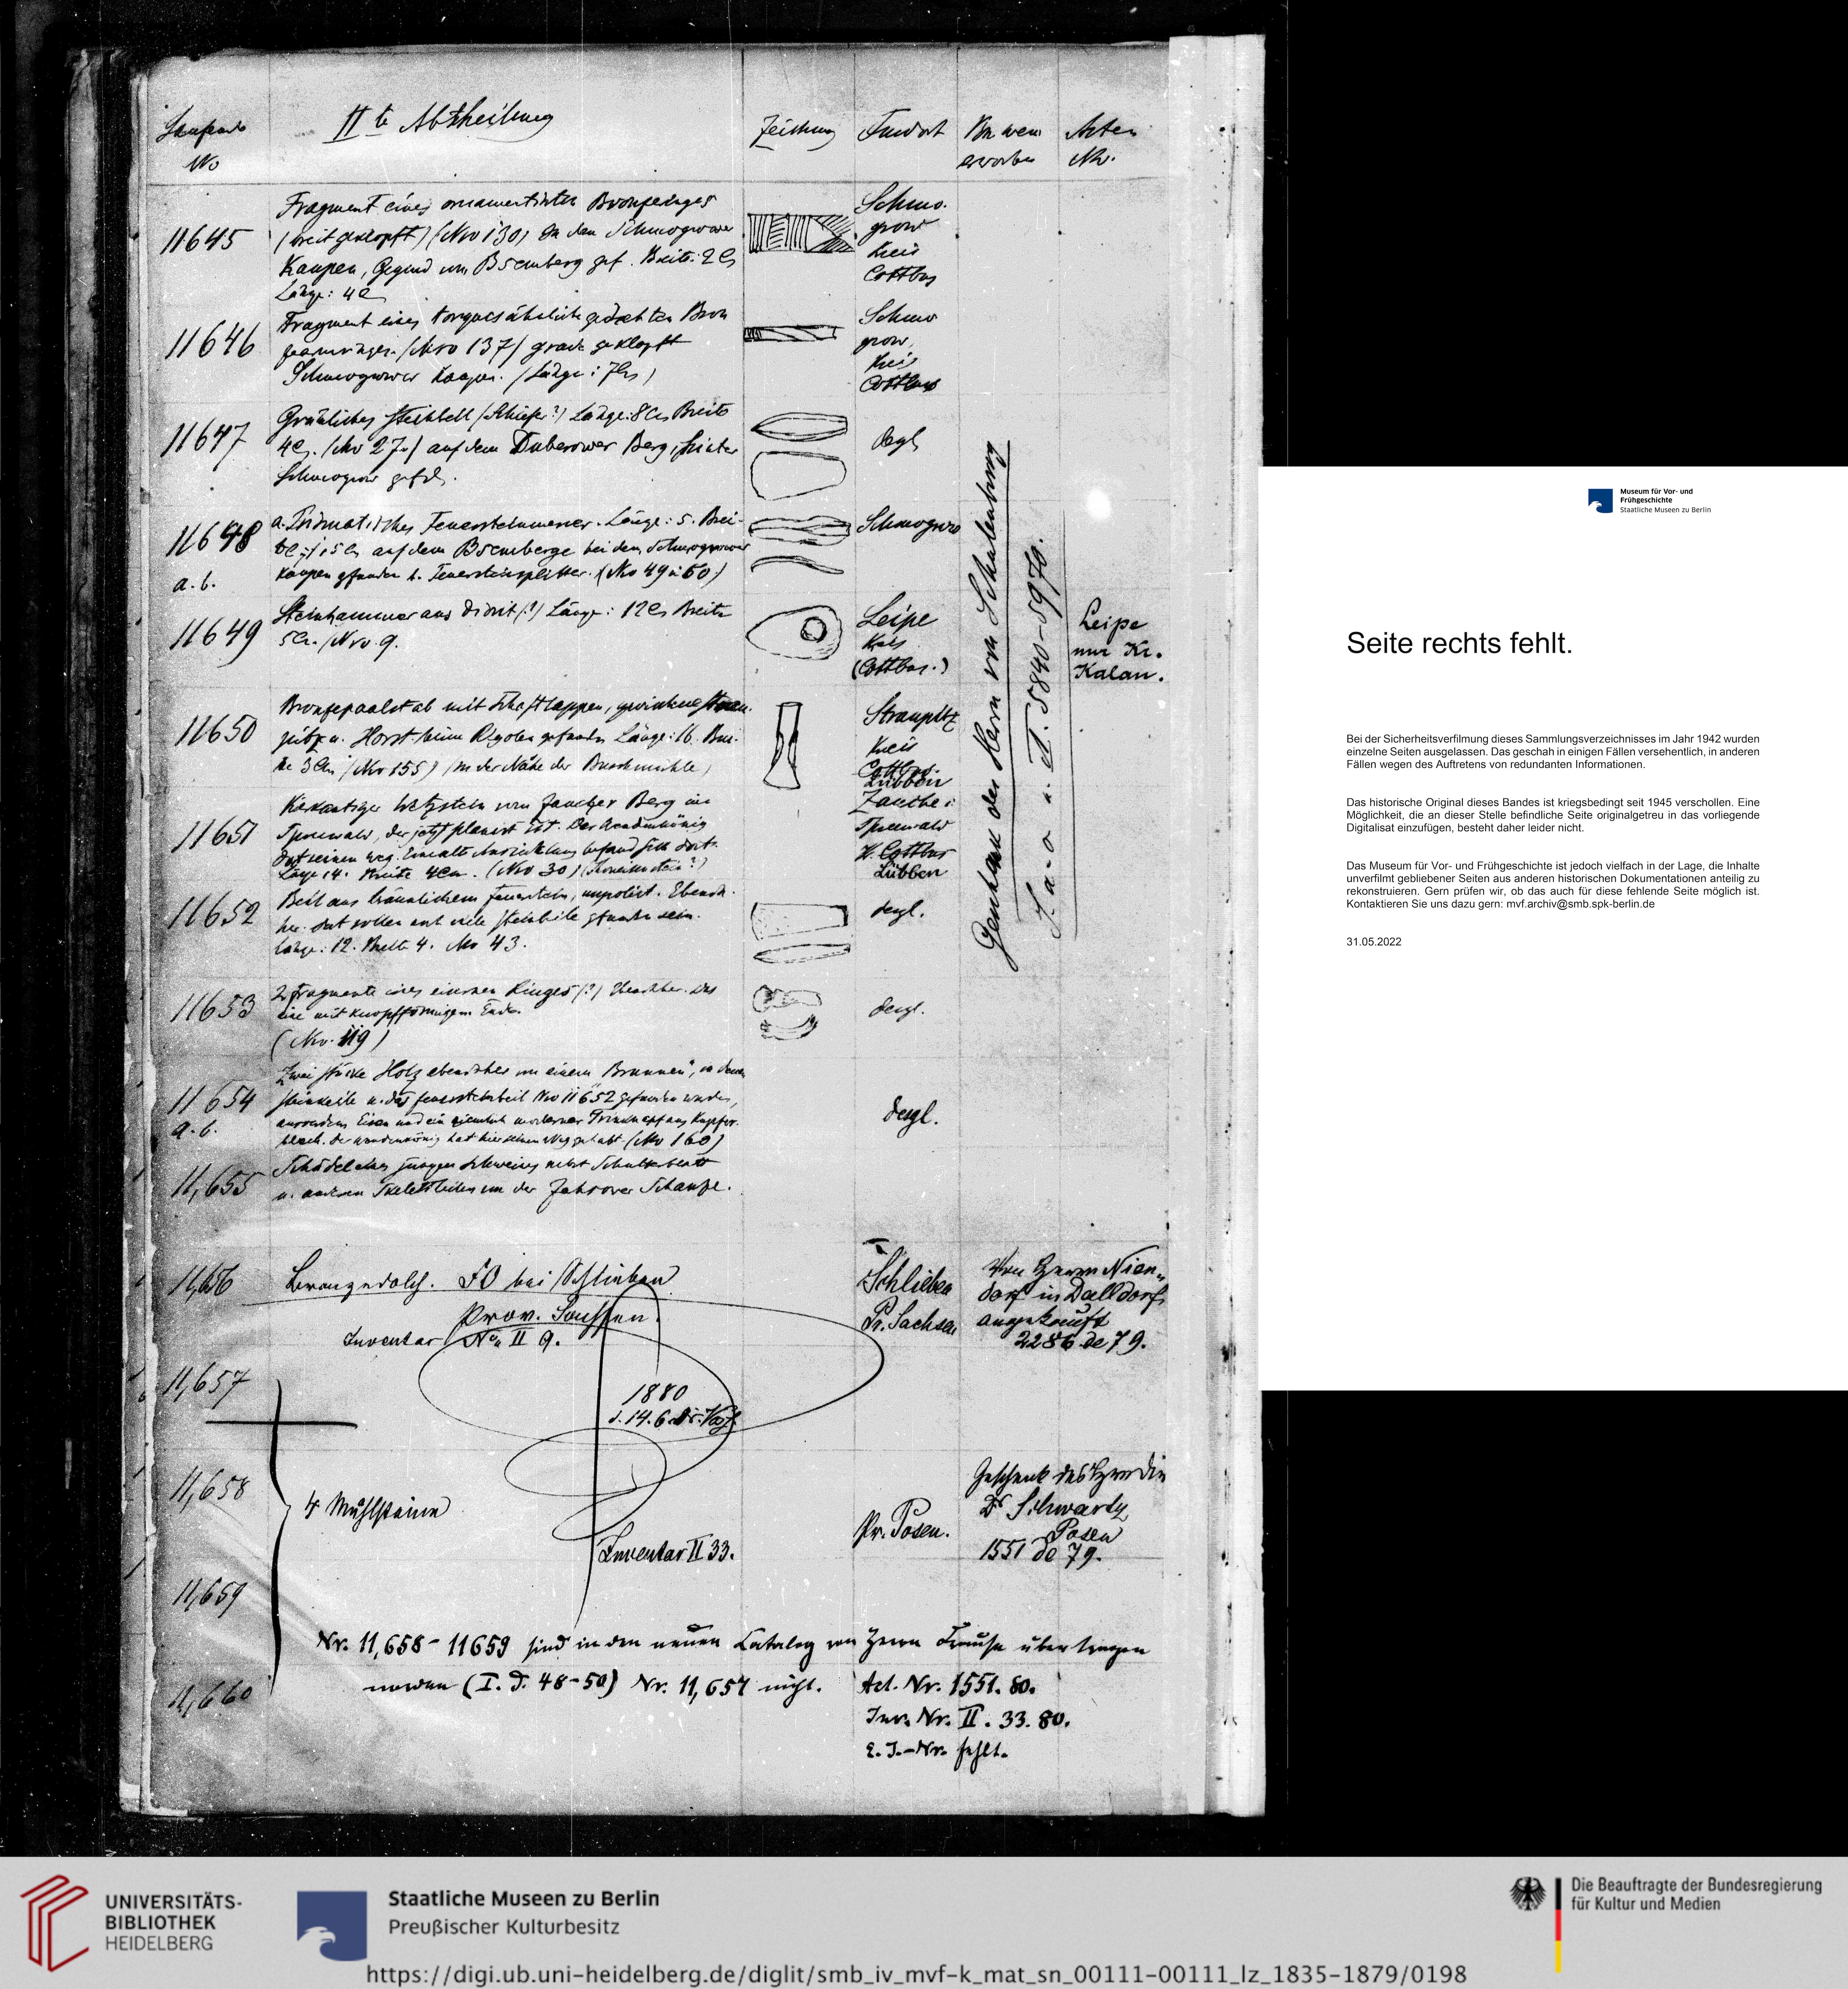 Laufende No
IIte Abtheilung
Zeichnung
Fundort
Von wem erworben
Acten Nr.
11645
Fragment eines ornamentirten Bronzeringes
(breit geklopft) (Nro 130) In den Schmogrower
Kaupen, Gegend von gef. Breite: 2 Cm
Länge: 4 Cm
Schmo-
grow
Kreis
Cottbus
11646
Fragment eines torquesähnlich gedrehten Bron
(Nro 137) grade geklopft
Schmogrower Kaupen. (Länge: 7 Cm)
Schmo
grow,
Kreis
Cottbus
11647
Grünliches Steinbeil (Schiefer?) Länge: 8 Cm Breite
4 Cm. (Nro 27.) auf dem Duberower Berg, hinter
Schmogrow gefd.
desgl.
11648
a. b.
a. Prismatisches Feuersteinmesser. Länge: 5. Brei-
te: 1,5 Cm auf dem bei den Schmogrower
Kaupen gefunden b. Feuersteinsplitter. (Nro 49 u 50)
Schmogrow
11649
Steinhammer aus Diorit (?) Länge: 12 Cm Breite
5 Cm. (Nro. 9.
Leipe
Kreis
(Cottbus.)
Leipe
nur Kr.
Kalau.
11650
Bronzepaalstab mit Schaftlappen, zwischen Strau-
pitz u. Horst beim Rigolen gefunden Länge: 16. Brei-
te 3 Cm (Nro 155) (in der Nähe der Buschmühle)
Straupitz
Kreis
Cottbus
Lübben
11651
Vierkantiger Wetzstein vom Zaucher Berg im
Spreewald, der jetzt planirt ist. Der Wendenkönig
Länge 14. Breite 4 Cm. (Nro 30)
Zauche i
Spreewald
K. Cottbus
Lübben
11652
Beil aus bräunlichem Feuerstein, unpolirt. Ebenda-
her. Dort sollen noch viele Steinbeile gefunden sein.
Länge: 12. Breite 4. Nro 43.
desgl.
11653
2 Fragmente eines eisernen Ringes (?) Ebendaher. Das
eine mit knopfförmigem Ende.
(Nro. 119)
desgl.
11654
a. b.
Zwei Stücke Holz ebendaher von einem „Brunnen", in dem
Steinkeile u. das Feuersteinbeil Nro 11652 gefunden wurden,
ausserdem Eisen und ein ziemlich moderner Trinknapf aus Kupfer-
blech. Der Wendenkönig hat hier seinen Weg gehabt. (Nro 160)
desgl.
11,655
Schädel eines jungen Schweines nebst Schulterblatt
u. anderen Skelettheilen von der Zahsower Schanze.
Geschenk des Herrn von Schulenburg
I. a-o u. II. 5840-5970.
11,656
Bronzedolch. FO bei Schlieben
Prov. Sachsen.
Inventar No II 9.
Schlieben
Pr. Sachsen
Von Herrn Nien-
dorf in Dalldorf
angekauft
2286 de 79.
11,657
1880
d. 14. 6. Dr. Voß.
11,658
4 Mühlsteine
Inventar II 33.
Pr. Posen.
Geschenk des Herrn Dir
Dr Schwartz
Posen
1551 de 79.
11,659
Nr. 11,658-11659 sind in den neuen Catalog von Herrn Krause übertragen
worden (I. d. 48-50) Nr. 11,657 nicht.
11,660
Act. Nr. 1551. 80.
Inv. Nr. II. 33. 80.
E. J.-Nr. fehlt.
Museum für Vor- und
Frühgeschichte
Staatliche Museen zu Berlin
Seite rechts fehlt.
Bei der Sicherheitsverfilmung dieses Sammlungsverzeichnisses im Jahr 1942 wurden
einzelne Seiten ausgelassen. Das geschah in einigen Fällen versehentlich, in anderen
Fällen wegen des Auftretens von redundanten Informationen.
Das historische Original dieses Bandes ist kriegsbedingt seit 1945 verschollen. Eine
Möglichkeit, die an dieser Stelle befindliche Seite originalgetreu in das vorliegende
Digitalisat einzufügen, besteht daher leider nicht.
Das Museum für Vor- und Frühgeschichte ist jedoch vielfach in der Lage, die Inhalte
unverfilmt gebliebener Seiten aus anderen historischen Dokumentationen anteilig zu
rekonstruieren. Gern prüfen wir, ob das auch für diese fehlende Seite möglich ist.
Kontaktieren Sie uns dazu gern: mvf.archiv@smb.spk-berlin.de
31.05.2022
UNIVERSITÄTS-
BIBLIOTHEK
HEIDELBERG
Staatliche Museen zu Berlin
Preußischer Kulturbesitz
Die Beauftragte der Bundesregierung
für Kultur und Medien
https://digi.ub.uni-heidelberg.de/diglit/smb_iv_mvf-k_mat_sn_00111-00111_lz_1835-1879/0198